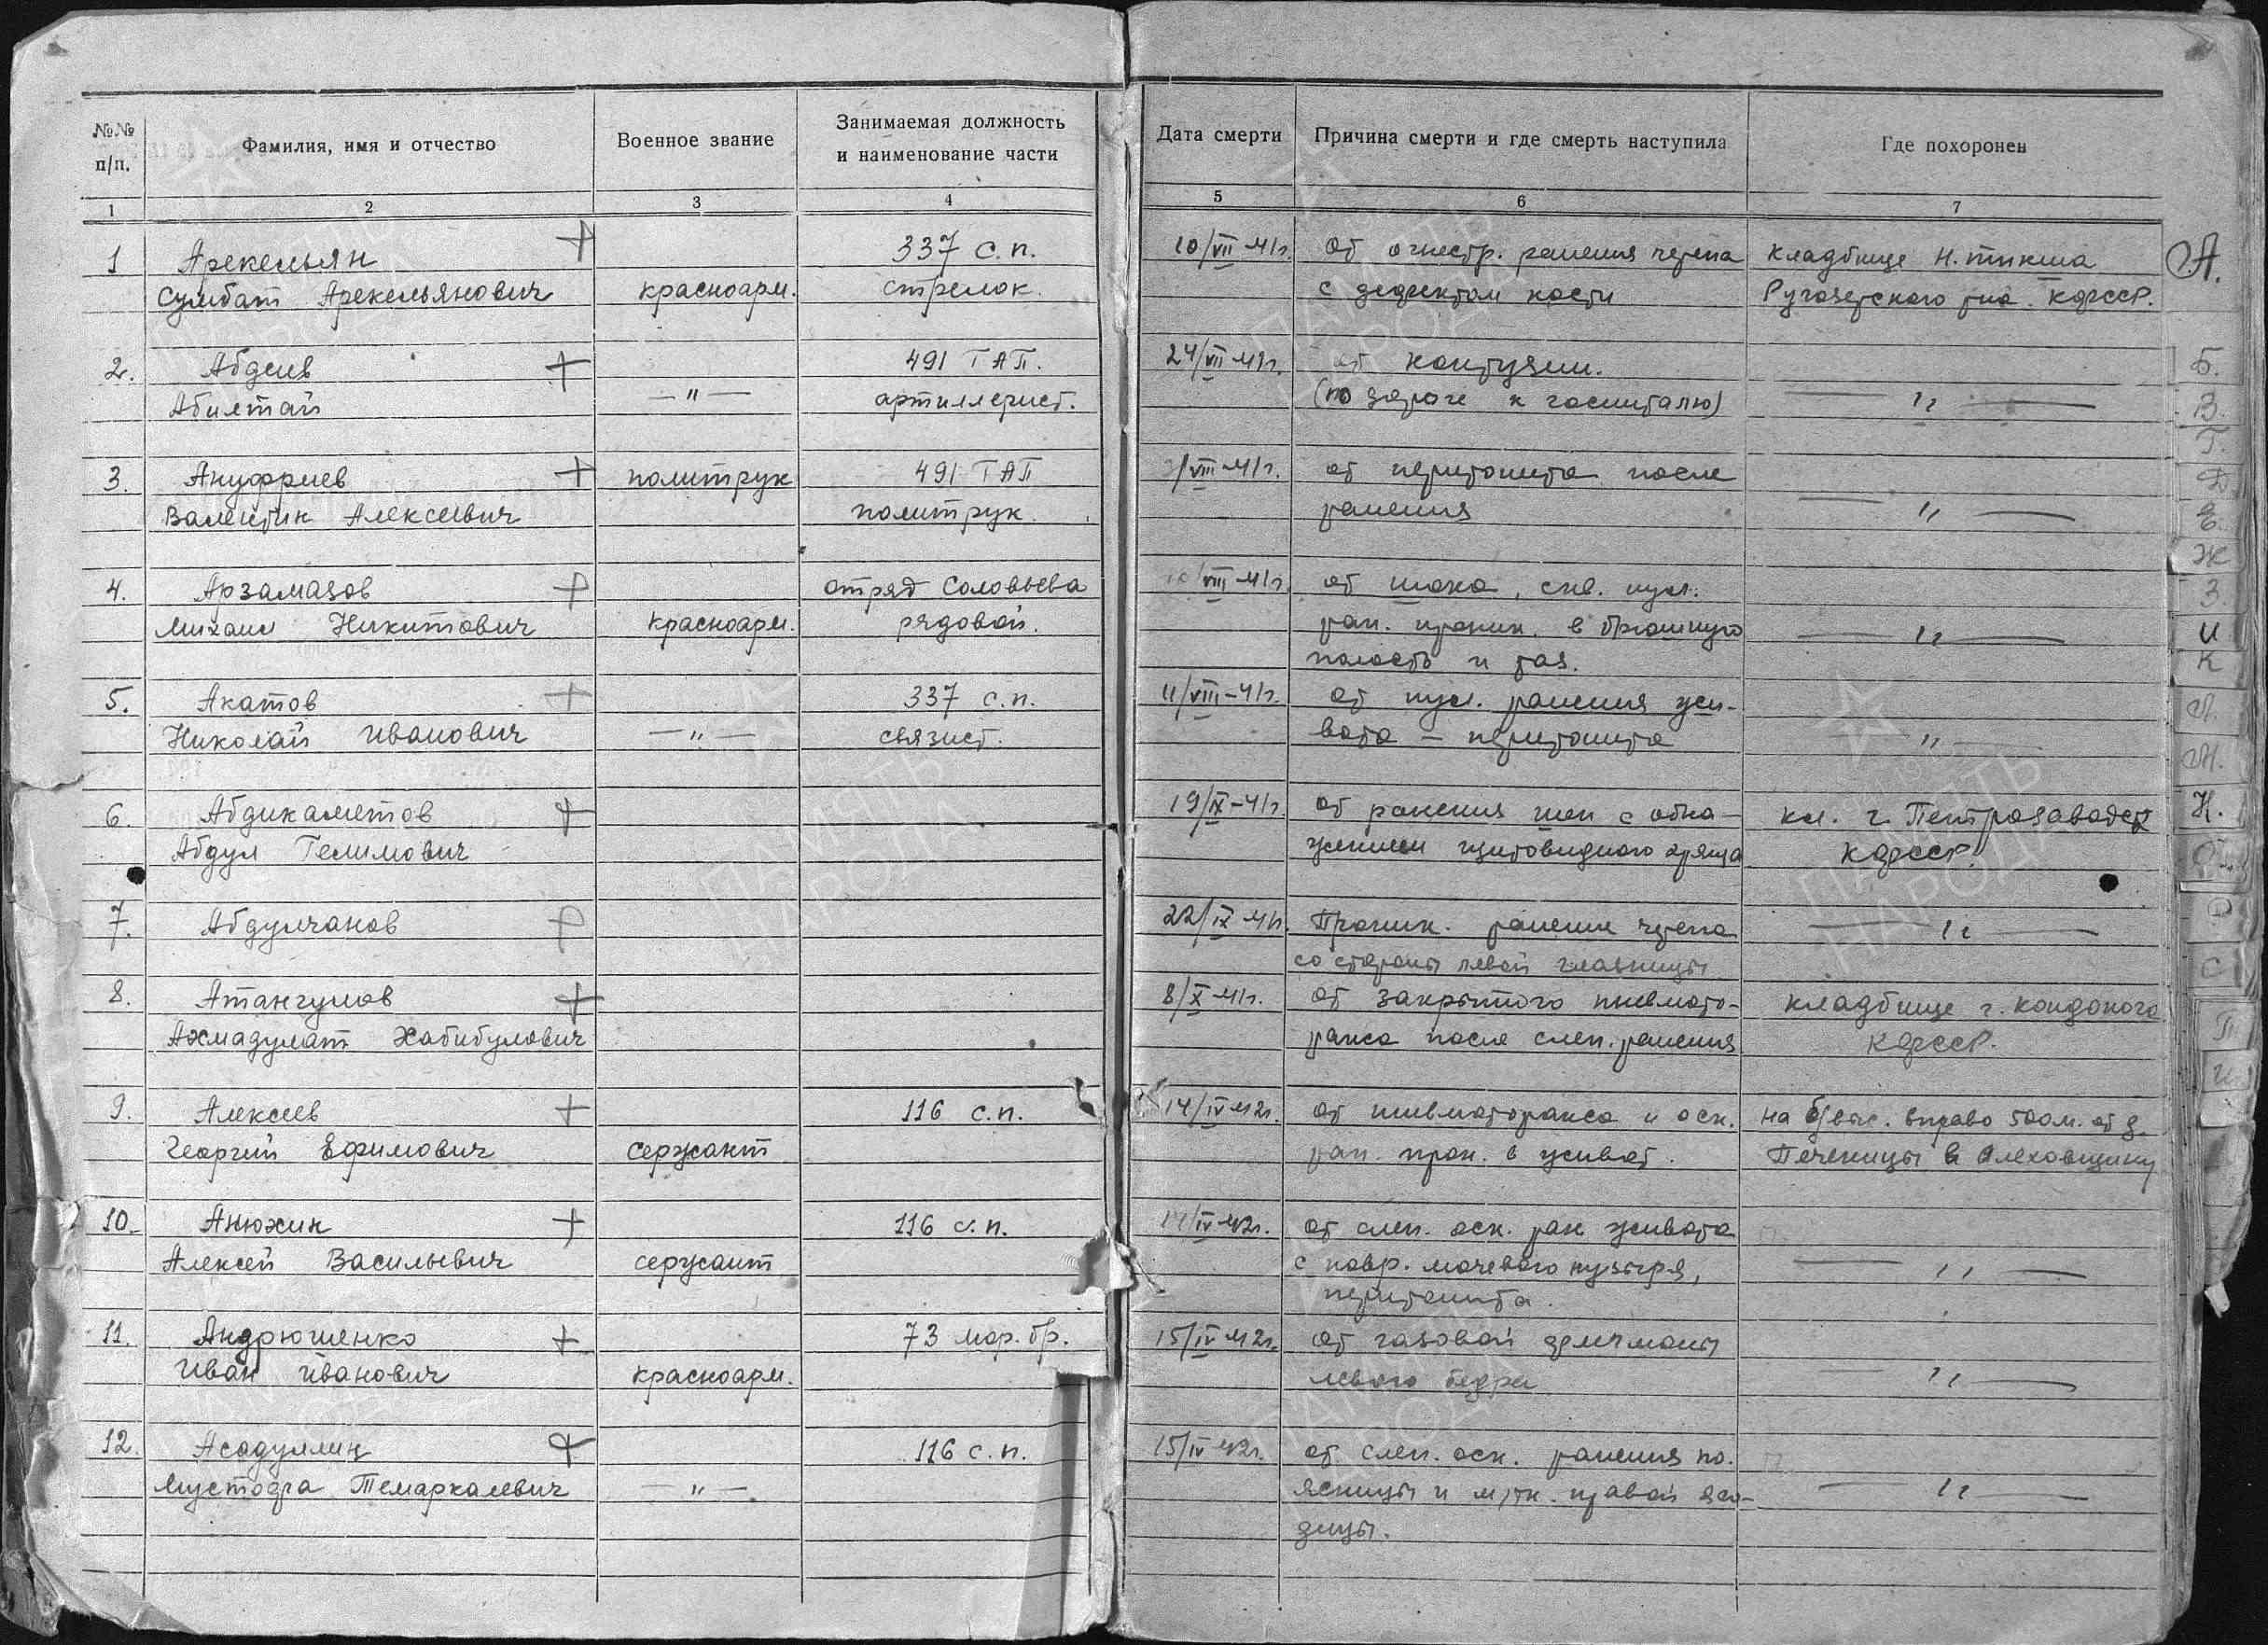 №№ п/п.
Фамилия, имя и отчество
Военное звание
Занимаемая должность
и наименование части
Дата смерти
Причина смерти и где смерть наступила
Где похоронен
1 2 3 4 5 6 7
1 Арекельян 337 с.п. 10/VII-41г. от огнестр. ранения черепа кладбище Н. Тикша
Сумбат Арекельянович красноарм. стрелок. с дефектом кости Ругозерского р-на КФССР.
2. Абдеев 491 ГАП. 24/VII-41г. от контузии.
Абилтай — " — артиллерист. (по дороге к госпиталю) — " —
3. Ануфриев политрук 491 ГАП /VIII-41г. от перитонита после
Валентин Алексеевич политрук ранения — " —
4. Арзамазов отряд Соловьева /VIII-41г. от шока, слеп. пул.
Михаил Никитович красноарм. рядовой. ран. проник. в брюшную — " —
полость и таз.
5. Акатов 337 с.п. 11/VIII-41г. от пул. ранения жи-
Николай Иванович — " — связист. вота — перитонита "
6. Абдикаметов 19/IX-41г. от ранения шеи с обна- кл. г. Петрозаводск
Абдул Гелимович жением щитовидного хряща КФССР.
7. Абдулчанов 22/IX-41г. Проник. ранение черепа — " —
со стороны левой глазницы
8. Атангулов 8/X-41г. от закрытого пневмото- кладбище г. Кондопога
Ахмадулат Хабибулович ракса после слеп. ранения КФССР.
9. Алексеев 116 с.п. 14/IV-42г. от пневмоторакса и оск. на выс. вправо 500м. от д.
Георгий Ефимович сержант ран. прон. в живот. Печеницы в Алеховщину
10. Анюхин 116 с.п. /IV-42г. от слеп. оск. ран живота
Алексей Васильевич сержант с повр. мочевого пузыря, — " —
перитонита.
11. Андрюшенко 73 мор. бр. 15/IV-42г. от газовой флегмоны
Иван Иванович красноарм. левого бедра — " —
12. Асадуллин 116 с.п. 15/IV-42г. от слеп. оск. ранения по-
Мустафа Темаркаевич — " — ясницы и м/тк. правой яго- — " —
дицы.
А.
Б.
В.
Г.
Д
Е.
Ж
З.
И
К
Л.
М.
Н.
О.
Р
С
П
ПАМЯТЬ
НАРОДА